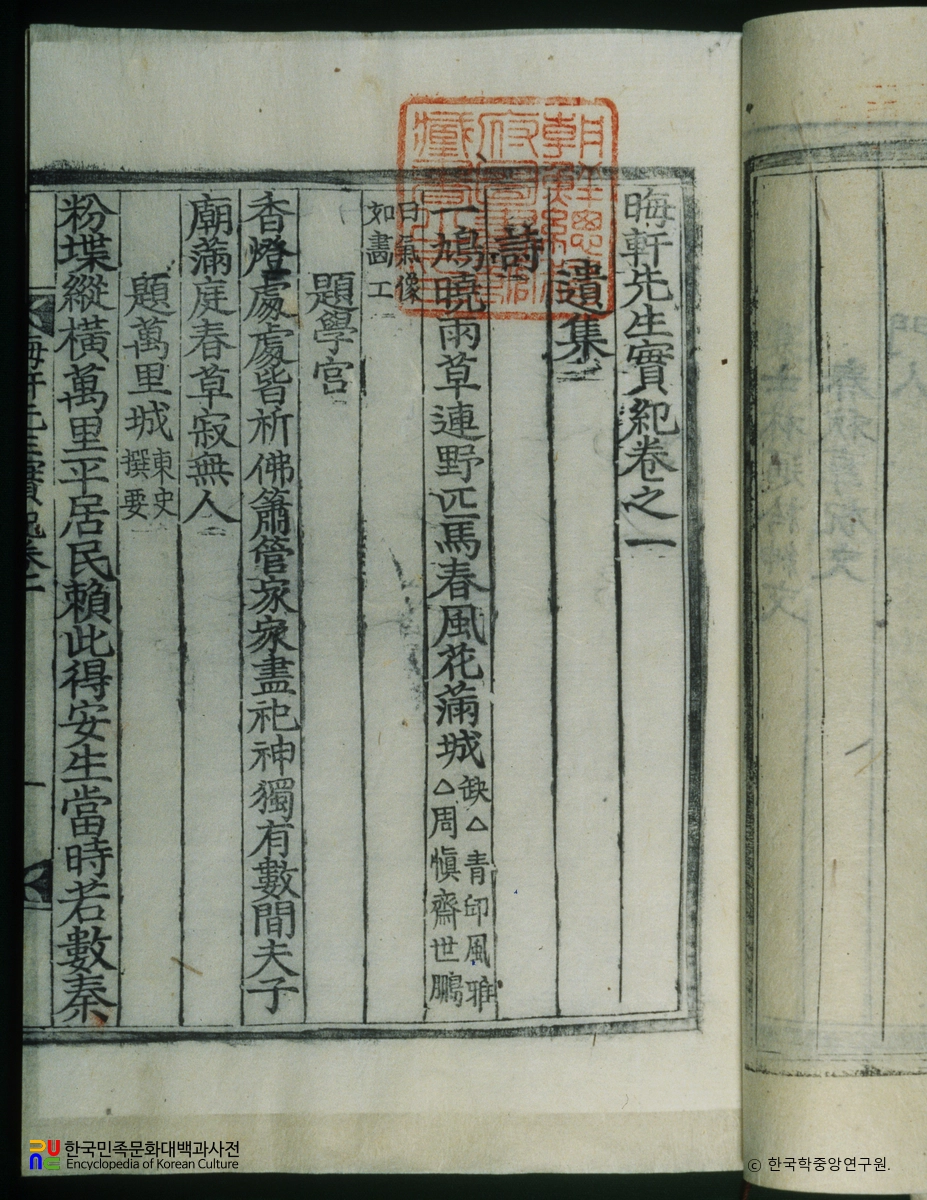 晦軒先生實紀卷之一
遺集
詩
一鳩曉雨草連野匹馬春風花滿城 缺△青邱風雅△周愼齋世鵬
曰氣像如畵工
題學宮
香燈處處皆祈佛簫管家家盡祀神獨有數間夫子
廟滿庭春草寂無人
題萬里城 東史撰要
粉堞縱橫萬里平居民賴此得安生當時若數秦
晦軒先生實紀卷一
朝鮮總督府圖書館藏書之印
한국민족문화대백과사전
Encyclopedia of Korean Culture
© 한국학중앙연구원.